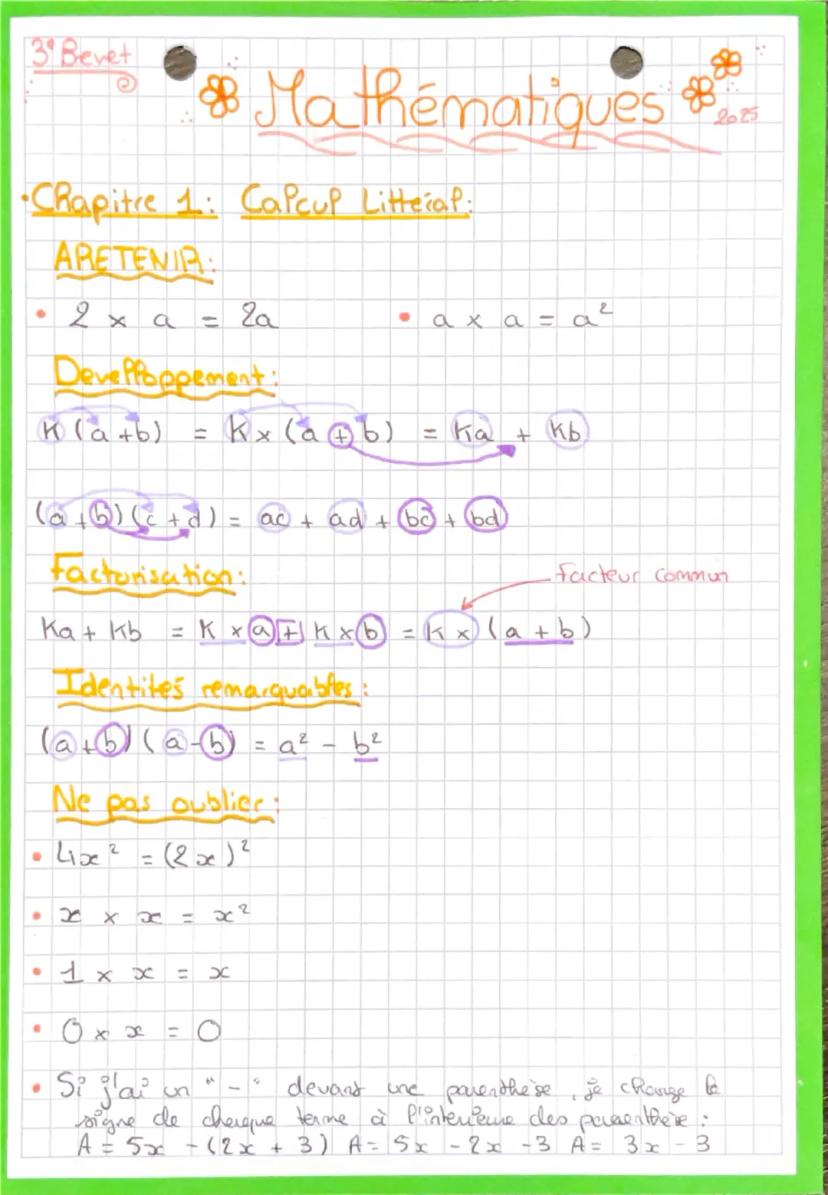 3° Bevet
Mathématiques
2025
• Chapitre 1: Calcul Littéral:
A RETENIR:
• 2 × a = 2a
• a × a = a²
Develloppement:
K (a+b) = K × (a + b) = Ka + Kb
(a + b) (c + d) = ac + ad + bc + bd
Factorisation:
facteur commun
Ka + Kb = K × a + K × b = K × (a + b)
Identités remarquables:
(a + b) (a - b) = a² - b²
Ne pas oublier:
• 4x² = (2x)²
• x × x = x²
• 1 × x = x
• 0 × x = 0
• Si j'ai un "-" devant une parenthèse, je change le
signe de chaque terme à l'intérieure des parenthèse:
A = 5x - (2x + 3) A = 5x - 2x - 3 A = 3x - 3